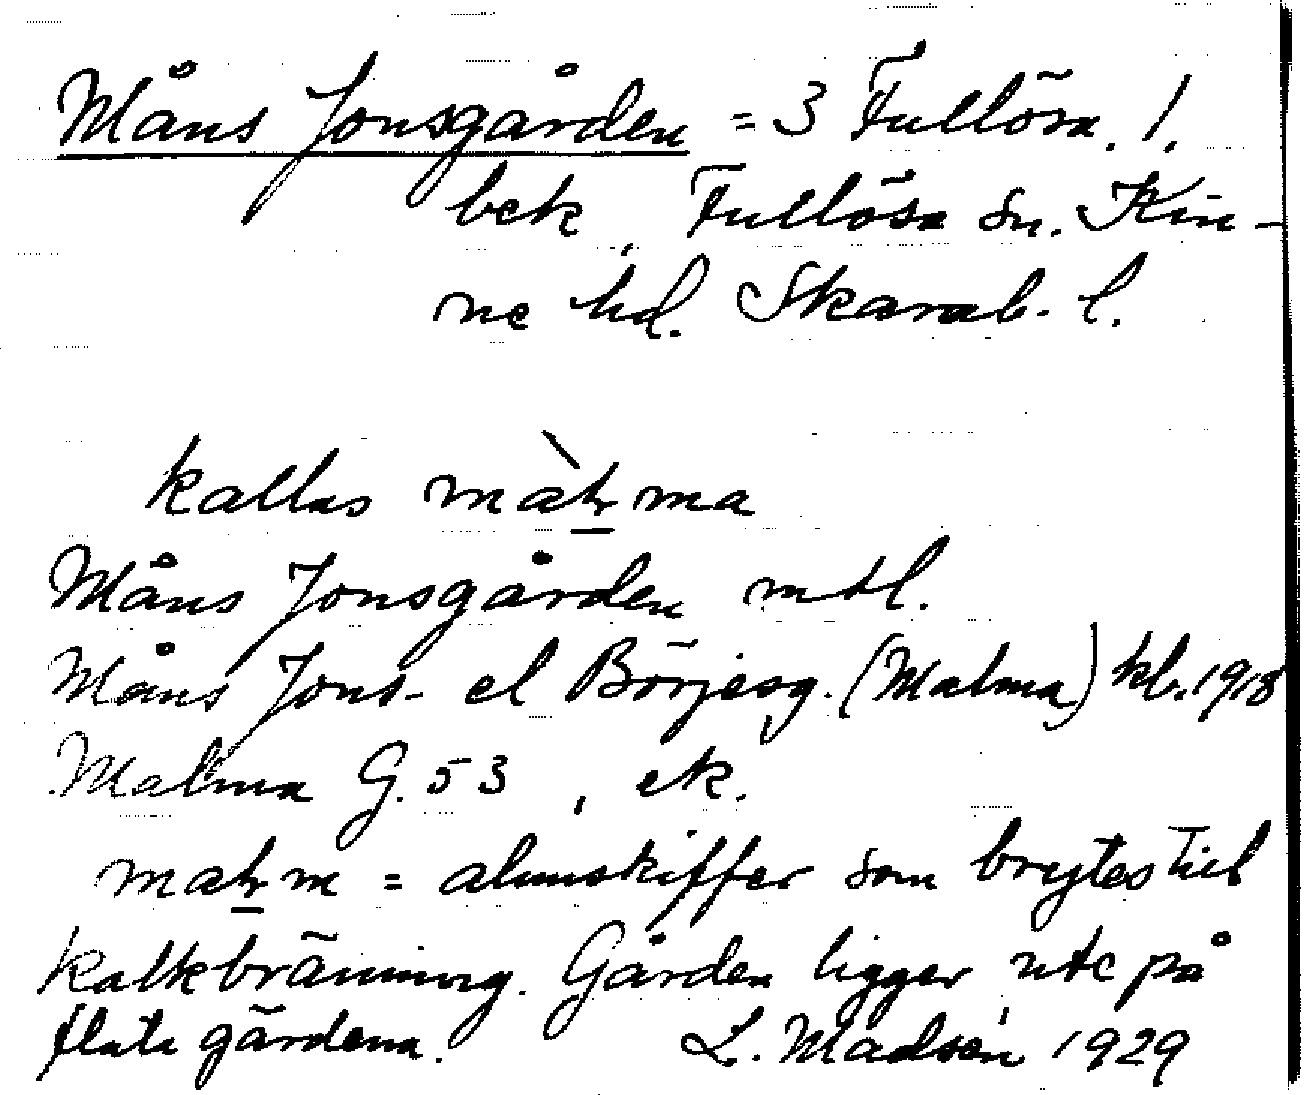 Måns Jonsgården = 3 Fullösa. 1.
bek, Fullösa sn. Kin-
ne hd. Skarab. l.
kallas màḻma
Måns Jonsgården mtl.
Måns Jons- el Börjesg. (Malma) kb. 1918
Malma G. 53, ek.
maḻm = alunskiffer som brytes till
kalkbränning. Gården ligger ute på
flata gärdena. L. Madsén 1929